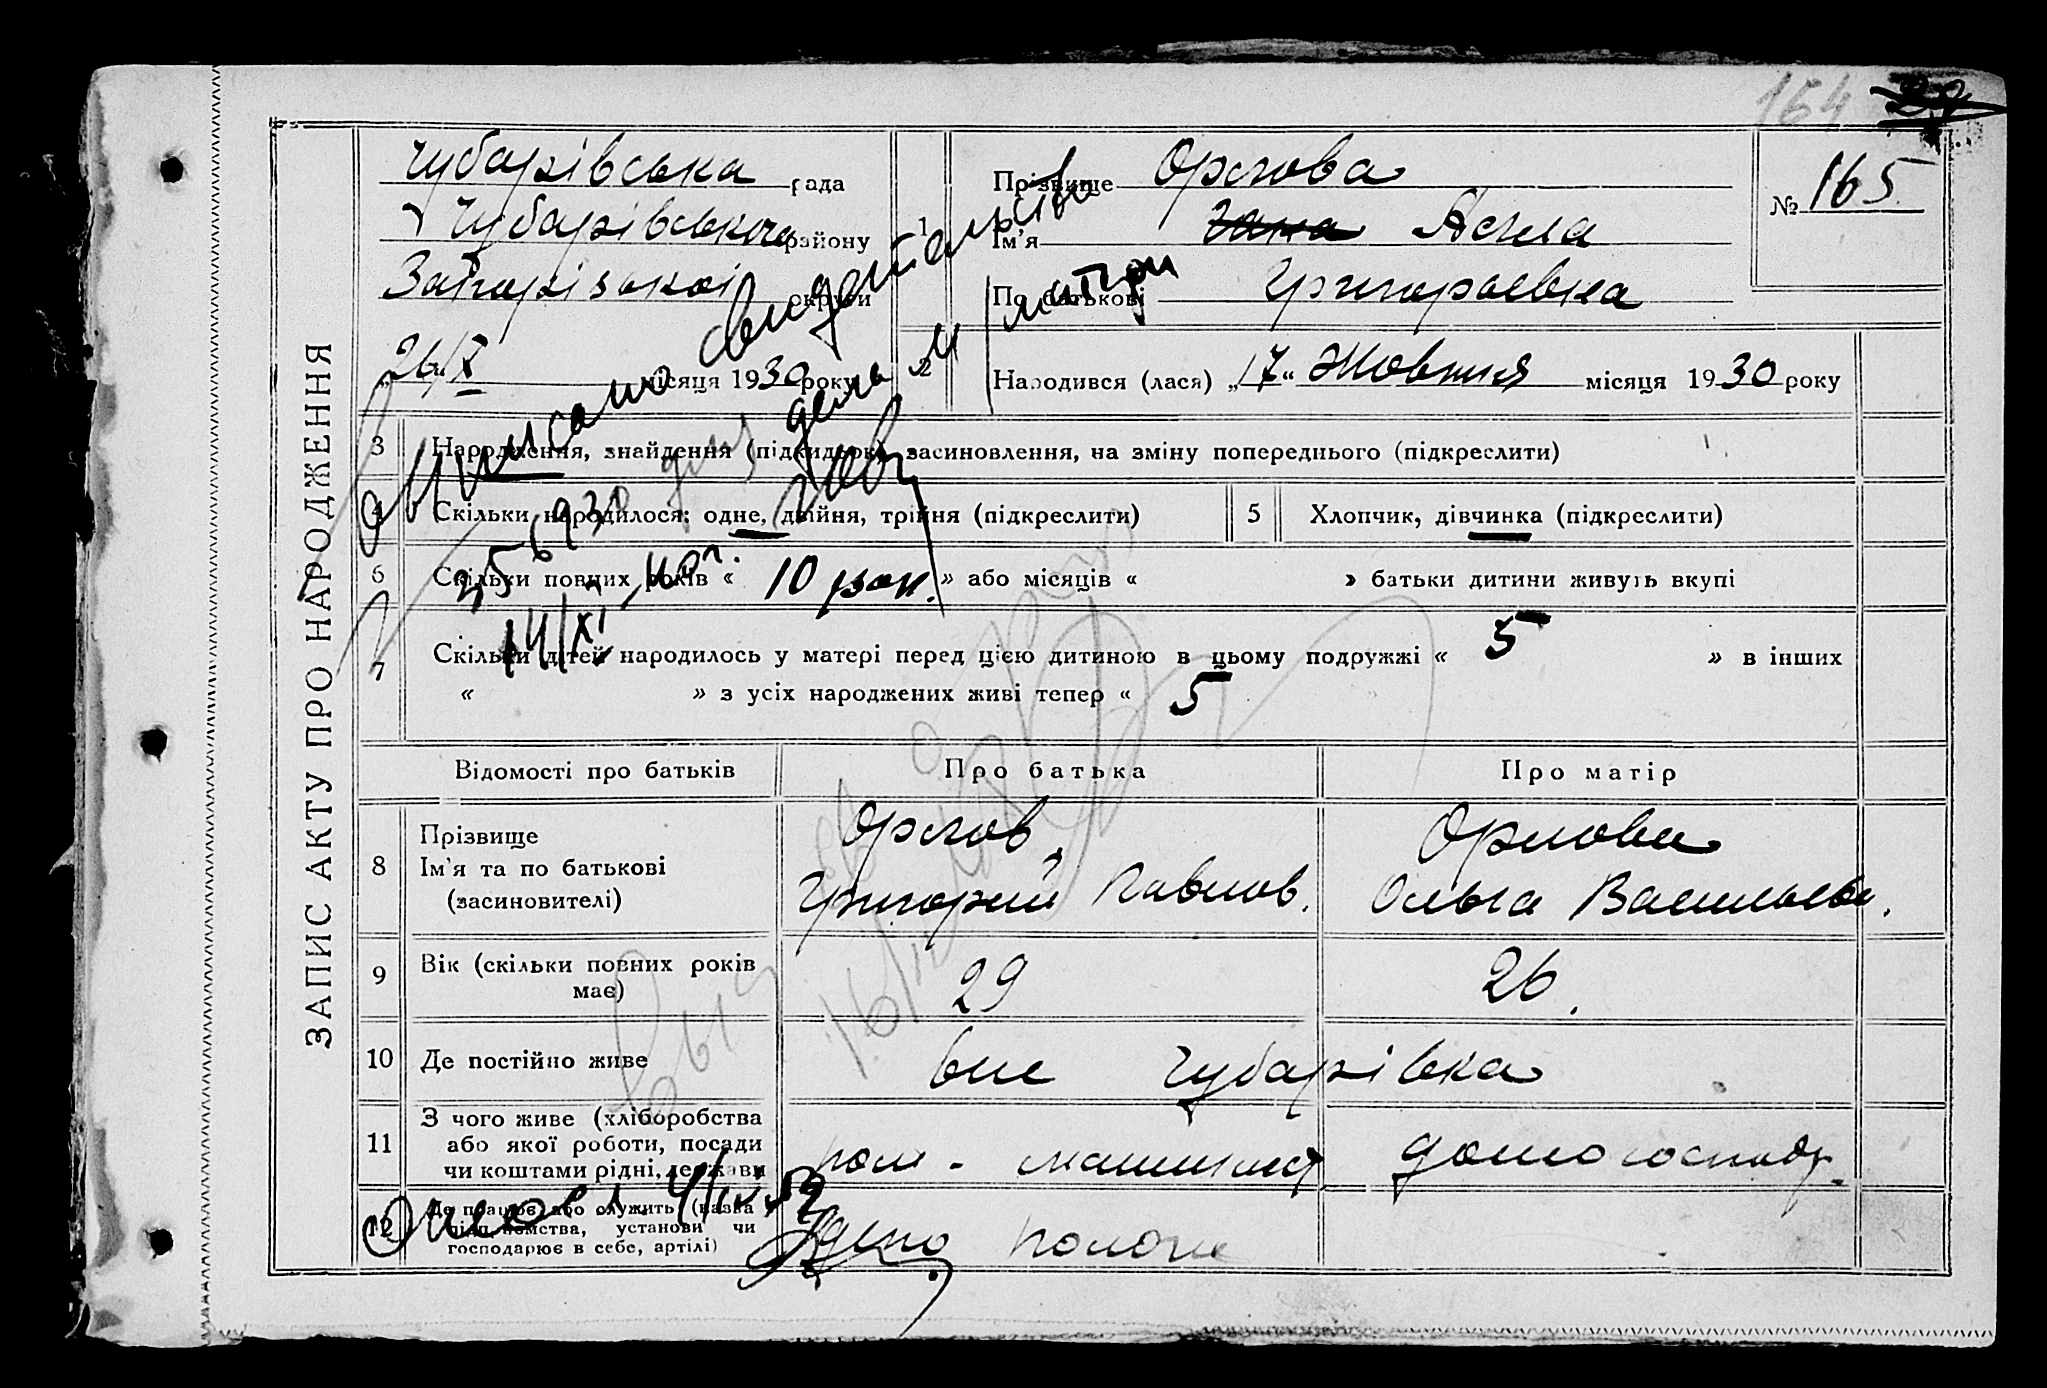 164
ЗАПИС АКТУ ПРО НАРОДЖЕННЯ
Чубарівська рада
Чубарівського району
Запорізької округи
26/X місяця 1930 року
1 Прізвище Орлова
Ім'я Яела
По батькові Григорьевна
№ 165
2 Народився (лася) „17“ Жовтня місяця 1930 року
3 Народження, знайдення (підкидьок) засиновлення, на зміну попереднього (підкреслити)
4 Скільки народилося: одне, двійня, трійня (підкреслити)
5 Хлопчик, дівчинка (підкреслити)
6 Скільки повних років « 10 рок. » або місяців « » батьки дитини живуть вкупі
7 Скільки дітей народилось у матері перед цією дитиною в цьому подружжі « 5 » в інших
« » з усіх народжених живі тепер « 5
Відомості про батьків Про батька Про матір
8 Прізвище
Ім'я та по батькові
(засиновителі)
Орлов
Григорий Павлов.
Орлова
Ольга Васильевн.
9 Вік (скільки повних років
має)
29 26.
10 Де постійно живе
Чубарівка
11 З чого живе (хліборобства
або якої роботи, посади
чи коштами рідні, держави
пом. - машинист домогосподр.
12 Де працює або служить (назва
підприємства, установи чи
господарює в себе, артілі)
Депо Пологи
выписано свидетельство
14/XI 40 г.